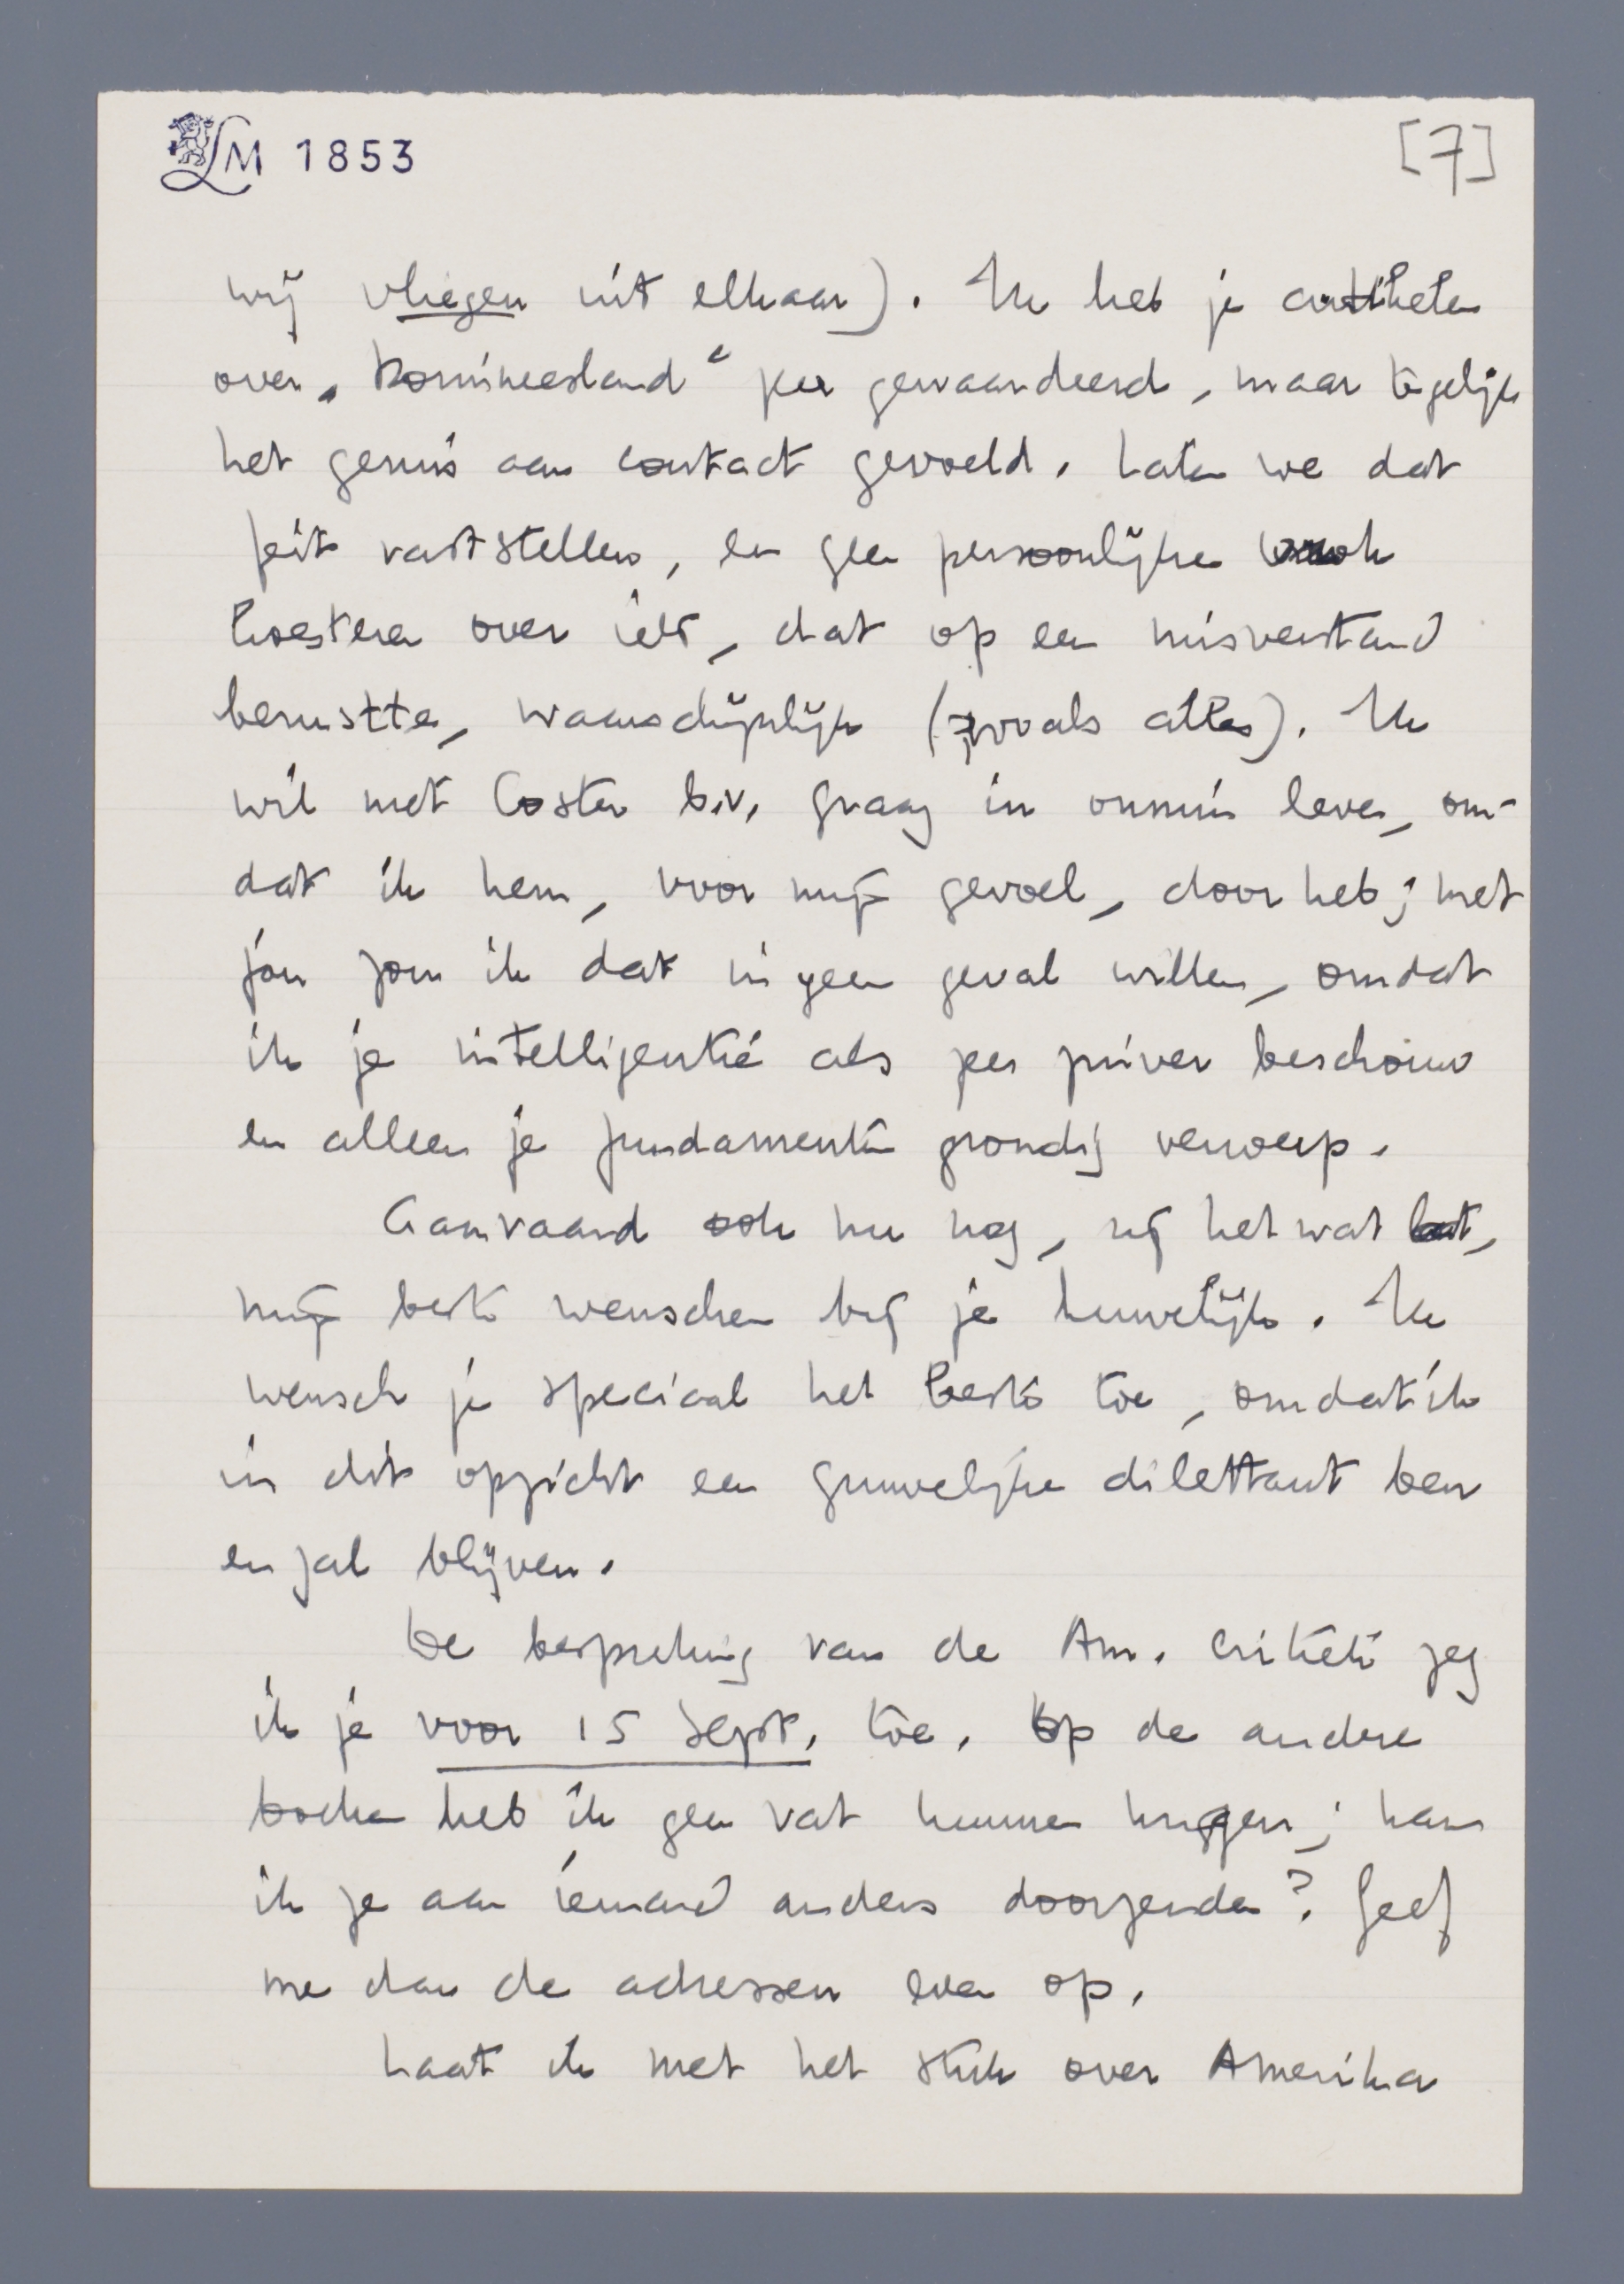 LM 1853
[7]
wij vliegen uit elkaar). Ik heb je artikelen
over „Domineesland" zeer gewaardeerd, maar tegelijk
het gemis aan contact gevoeld. Laten we dat
feit vaststellen, en geen persoonlijken wrok
koesteren over iets, dat op een misverstand
berustte, waarschijnlijk (zooals alles). Ik
wil met Coster b.v. graag in onmin leven, om-
dat ik hem, voor mijn gevoel, door heb; met
jou zou ik dat in geen geval willen, omdat
ik je intelligentie als zeer zuiver beschouw
en alleen je fundamenten grondig verwerp.
Aanvaard ook nu nog, zij het wat laat,
mijn beste wenschen bij je huwelijk. Ik
wensch je speciaal het beste toe, omdat ik
in dit opzicht een gruwelijke dilettant ben
en zal blijven.
De bespreking van de Am. critici zeg
ik je voor 15 Sept. toe. Op de andere
boeken heb ik geen vat kunnen krijgen; kan
ik ze aan iemand anders doorzenden? Geef
me dan de adressen even op.
Laat ik met het stuk over Amerika